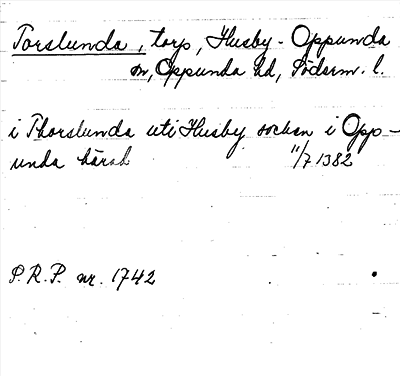 Torslunda, torp, Husby-Oppunda
sn, Oppunda hd, Söderm. l.
i Thorslunda uti Husby socken i Opp-
unda härad 11/7 1382
P.R.P. nr. 1742